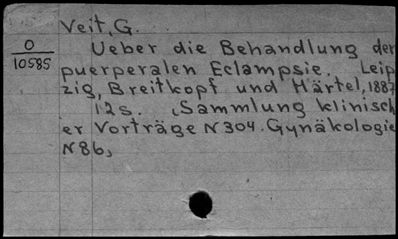 Veit, G.
O
10585
Ueber die Behandlung der
puerperalen Eclampsie. Leip
zig, Breitkopf und Härtel, 1887
12s. (Sammlung klinisch
er Vorträge N 304. Gynäkologie
N 86,